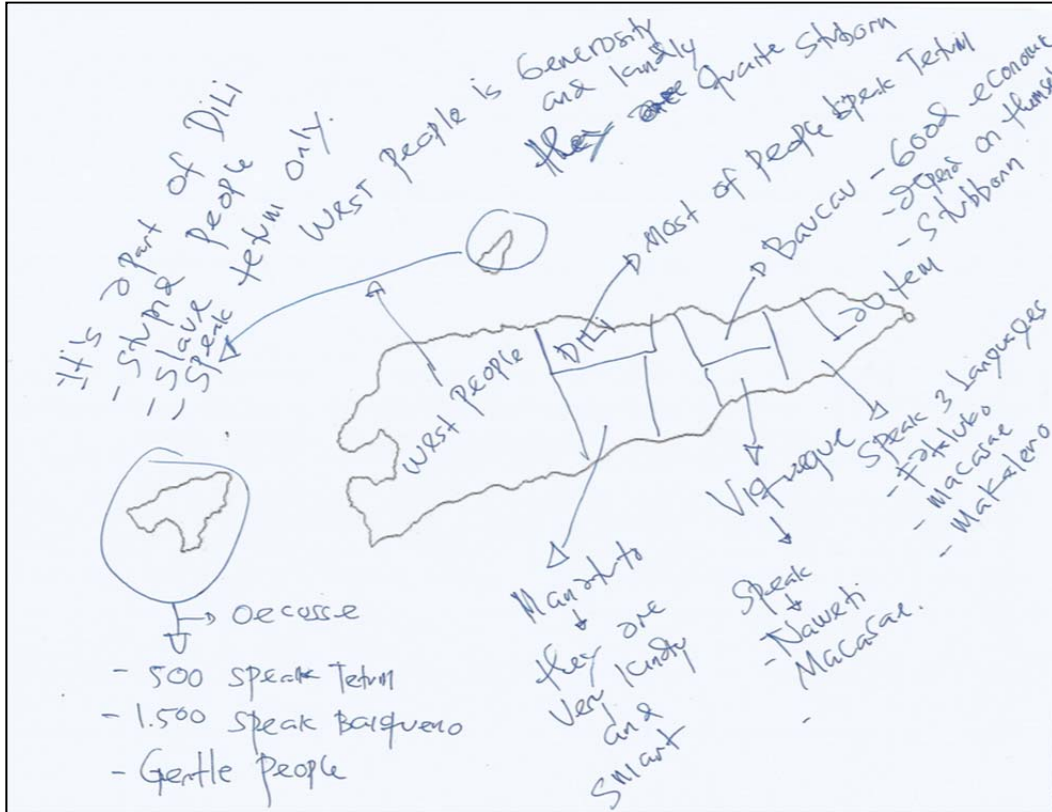 It's a part of DiLi
- Stupid people
- Slave
- Speak tetum only.
West people is Generosity
and kindly
they are Quaite Stuborn
Most of people speak Tetum
Baucau - Good economic
- depend on themself
- Stubborn
West people
DiLi
Lautem
Speak 3 Languages
- Fataluko
- Macasae
- Makalero
Viqueque
Speak
- Naweti
- Macasae.
-
Manatuto
they are
very kindly
and
smart
Oecusse
- 500 speak Tetum
- 1.500 speak Baiqueno
- Gentle people